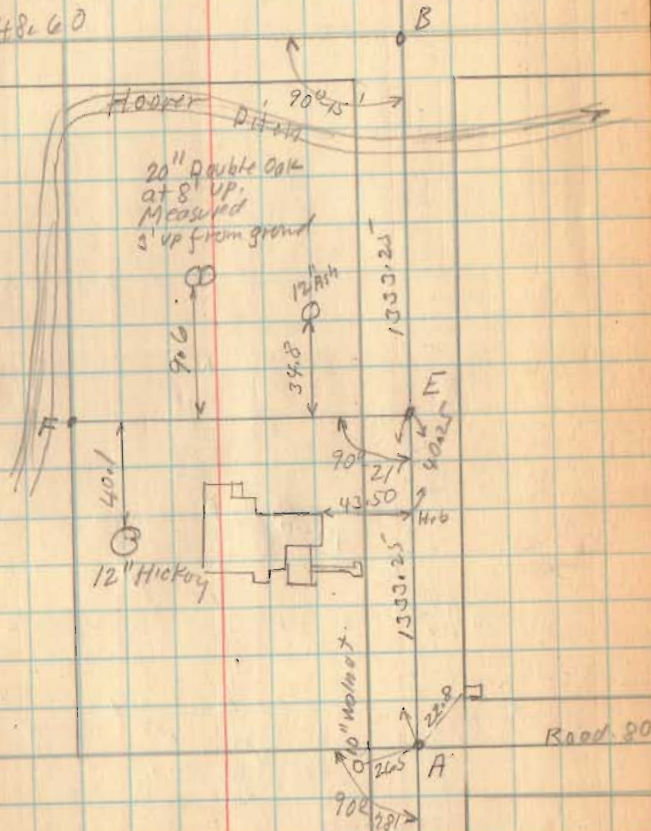 48.60
B
90° 15'
Hoover Ditch
20" Double Oak
at 8' up.
Measured
2' up from ground
12" Ash
1333.25
9.6
34.8
E
F
40.25
90° 21'
40.1
43.50
Hub
12" Hickory
1333.25
10" Walnut
22.8
Road 80
26.5
A
90°
28'